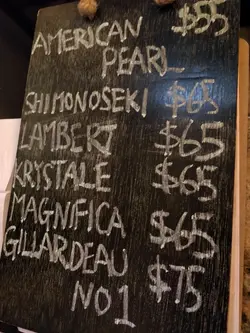 AMERICAN $55
PEARL
SHIMONOSEKI $65
LAMBERT $65
KRYSTALE $65
MAGNIFICA $65
GILLARDEAU $75
NO 1